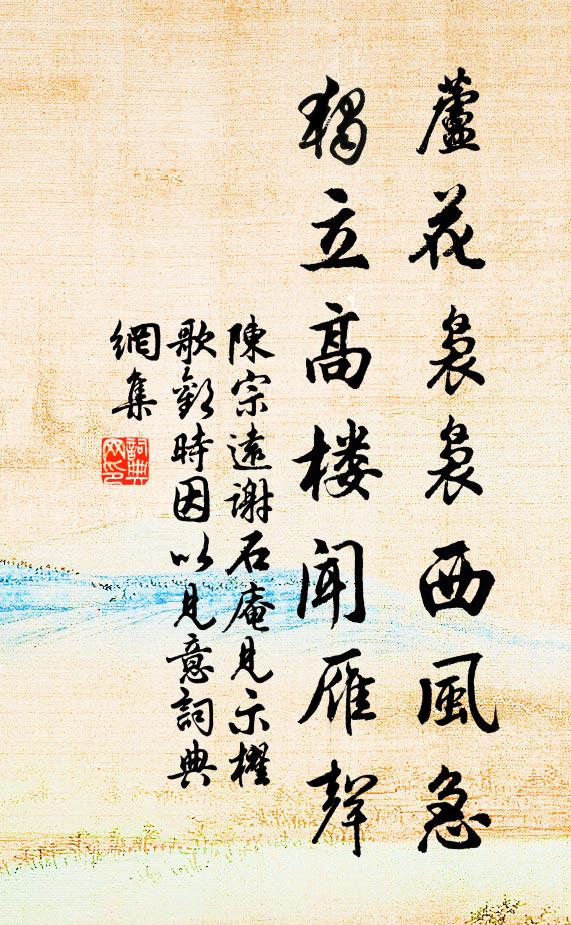 蘆花裊裊西風急
獨立高楼聞雁聲
陳宗遠謝石庵見示櫂
歌歎時因以見意詞典
網集
詞典
网印